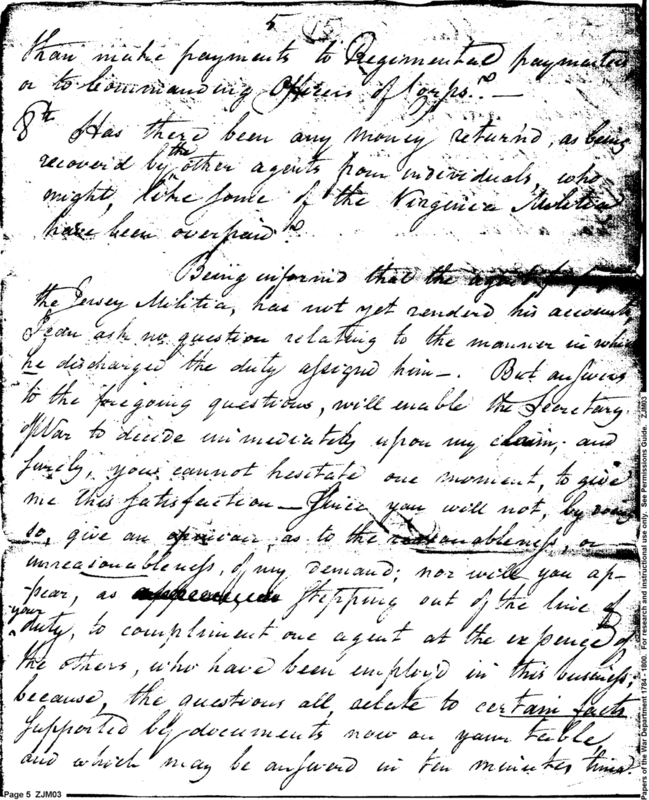 5 (15)
than make payments to Regimental paymasters
or to Commanding Officers of Corps? —
8th Has there been any money return'd, as being
recover'd by the other agents from individuals, who
might, like some of the Virginia Militia
have been overpaid?
Being inform'd that the agent to pay
the Jersey Militia, has not yet render'd his accounts
I can ask no question relating to the manner in which
he discharged the duty assign'd him —. But answers
to the foregoing questions, will enable the Secretary
of War to decide immediately upon my claim; and
surely, you cannot hesitate one moment, to give
me this satisfaction — Since you will not, by doing
so, give an opinion, as to the reasonableness, or
unreasonableness, of my demand; nor will you ap-
-pear, as stepping out of the line of
your duty, to compliment one agent at the expence of
the others, who have been employ'd in this business;
because, the questions all relate to certain facts
supported by documents now on your table,
and which may be answer'd in ten minutes time.
Page 5 ZJM03
Papers of the War Department 1784 - 1800. For research and instructional use only. See Permissions Guide. ZJM03